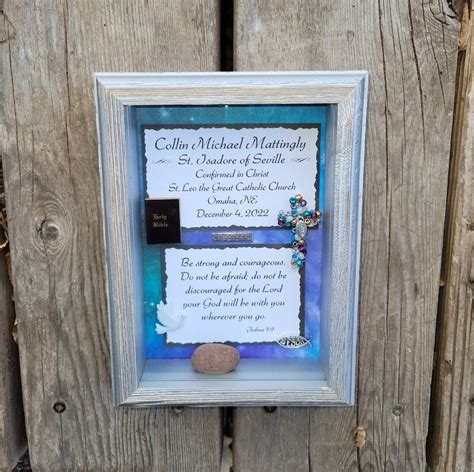 Collin Michael Mattingly
St. Isadore of Seville
Confirmed in Christ
St. Leo the Great Catholic Church
Omaha, NE
December 4, 2022
Holy
Bible
Be strong and courageous.
Do not be afraid; do not be
discouraged for the Lord
your God will be with you
wherever you go.
Joshua 1:9